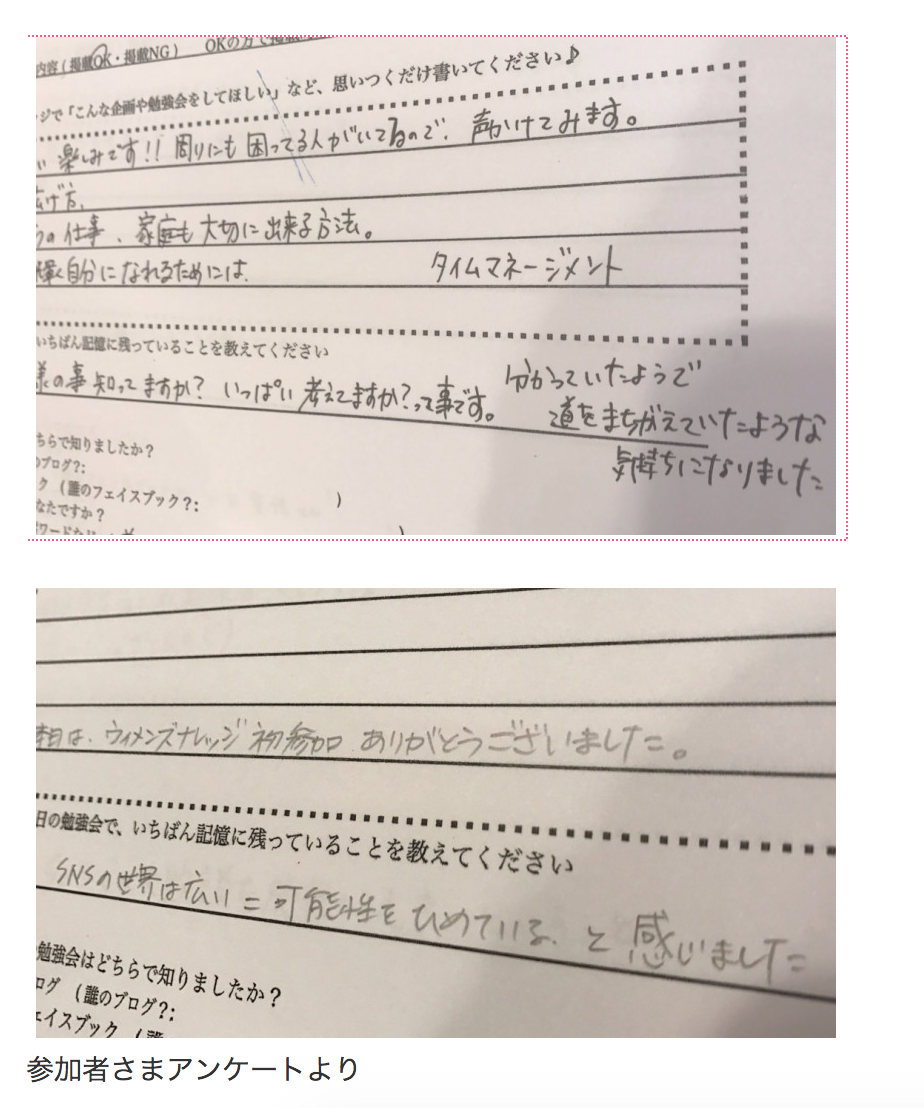 内容（掲載OK・掲載NG） OKの方で
ジで「こんな企画や勉強会をしてほしい」など、思いつくだけ書いてください♪
楽しみです!! 周りにも困ってる人がいてるので、声かけてみます。
広げ方、
の仕事、家庭も大切に出来る方法。
輝く自分になれるためには、 タイムマネージメント
いちばん記憶に残っていることを教えてください
様の事知ってますか? いっぱい考えてますか?って事です。 分かっていたようで
道をまちがえていたような
気持ちになりました
ちらで知りましたか？
のブログ?:
ク（誰のフェイスブック？: ）
なたですか？
本日は、ウィメンズナレッジ初参加 ありがとうございました。
日の勉強会で、いちばん記憶に残っていることを教えてください
SNSの世界は広い＝可能性をひめている と感じました
勉強会はどちらで知りましたか？
ログ （誰のブログ?:
ェイスブック （誰
参加者さまアンケートより